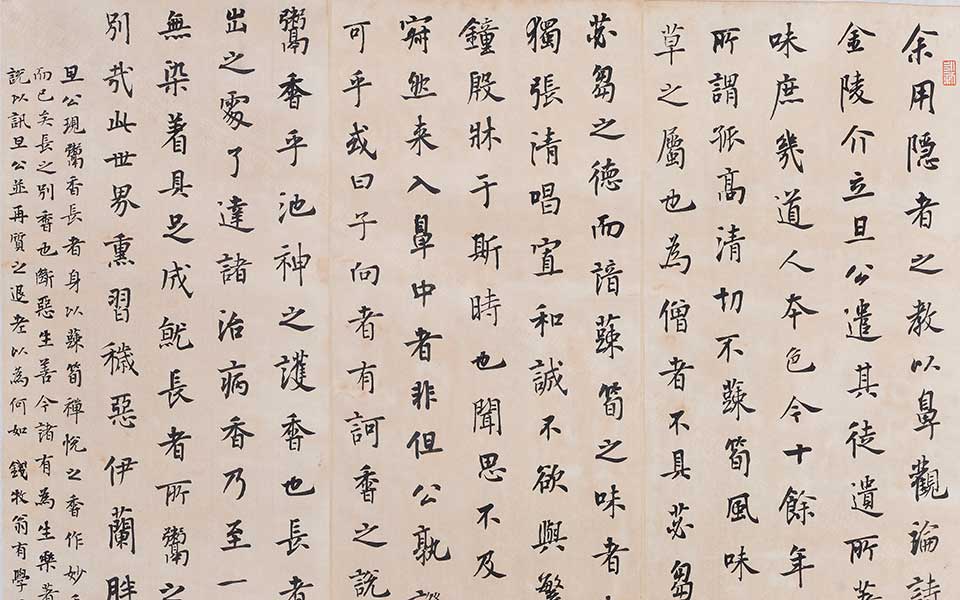 余用隱者之教以鼻觀論詩
金陵介立旦公遣其徒遺所著
味庶幾道人本色今十餘年
所謂孤高清切不蔬筍風味
草之屬也為僧者不具苾芻
苾芻之德而諳蔬筍之味者
獨張清唱宣和誠不欲與繁
鐘殷牀于斯時也聞思不及
窅然来入鼻中者非但公孰
可乎或曰子向者有訶香之說
鬻香乎池神之護香也長者
出之處了達諸治病香乃至一
無染着具足成就長者所鬻之
別哉此世界熏習穢惡伊蘭胖
旦公現鬻香長者身以蔬筍禪悅之香作妙香
而已矣長之別香也斷惡生善今諸有為生樂著
說以訊旦公並再質之退老以為何如 錢牧翁有學